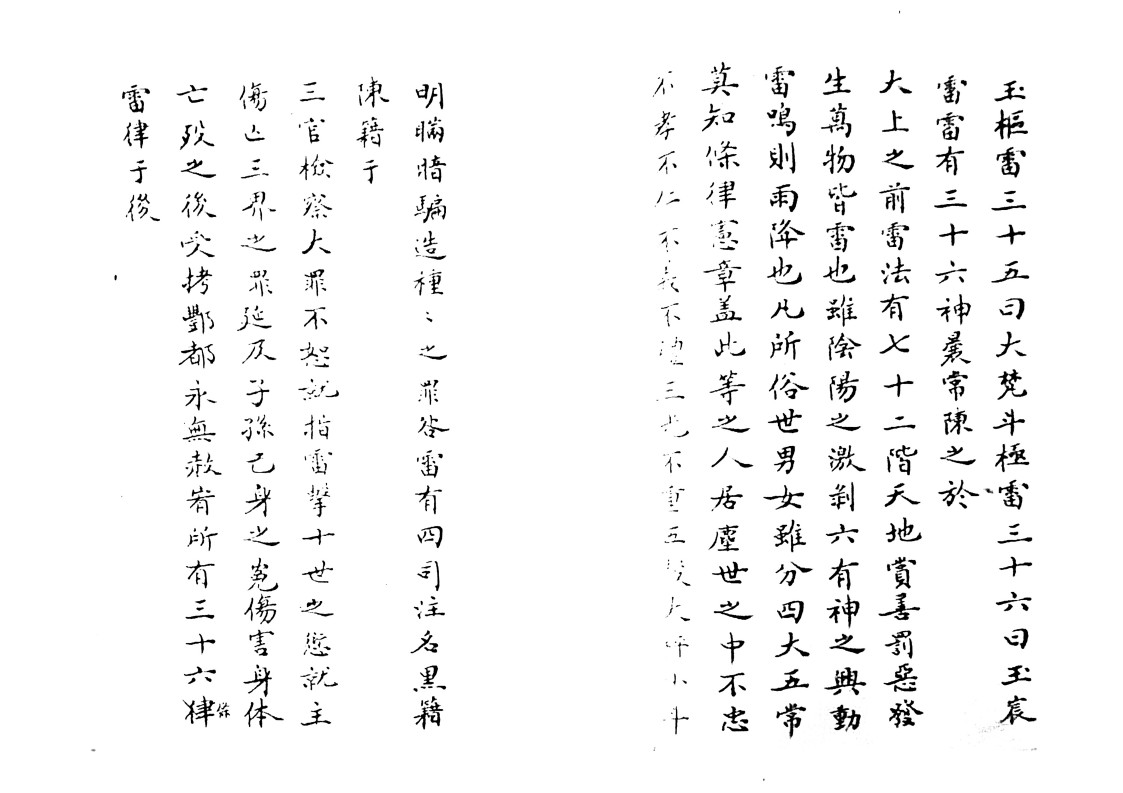 玉樞雷三十五曰大梵斗極雷三十六曰玉宸
雷雷有三十六神曩常陳之於
大上之前雷法有七十二階天地賞善罰惡發
生萬物皆雷也雖陰陽之激剥六有神之興動
雷鳴則雨降也凡所俗世男女雖分四大五常
莫知條律憲章盖此等之人居塵世之中不忠
不孝不仁不義不禮三光不重五穀大秤小斗
明瞞暗騙造種〻之罪咎雷有四司注名黑籍
陳籍于
三官檢察大罪不恕就指雷擊十世之愆就主
傷亡三界之罪延及子孫己身之冤傷害身体
亡歿之後受拷酆都永無赦宥所有三十六律條
雷律于後